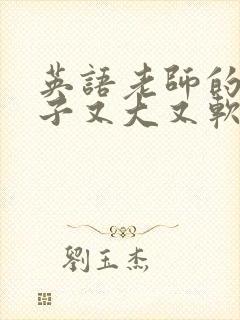 英語老師的
子又大又軟
劉玉杰